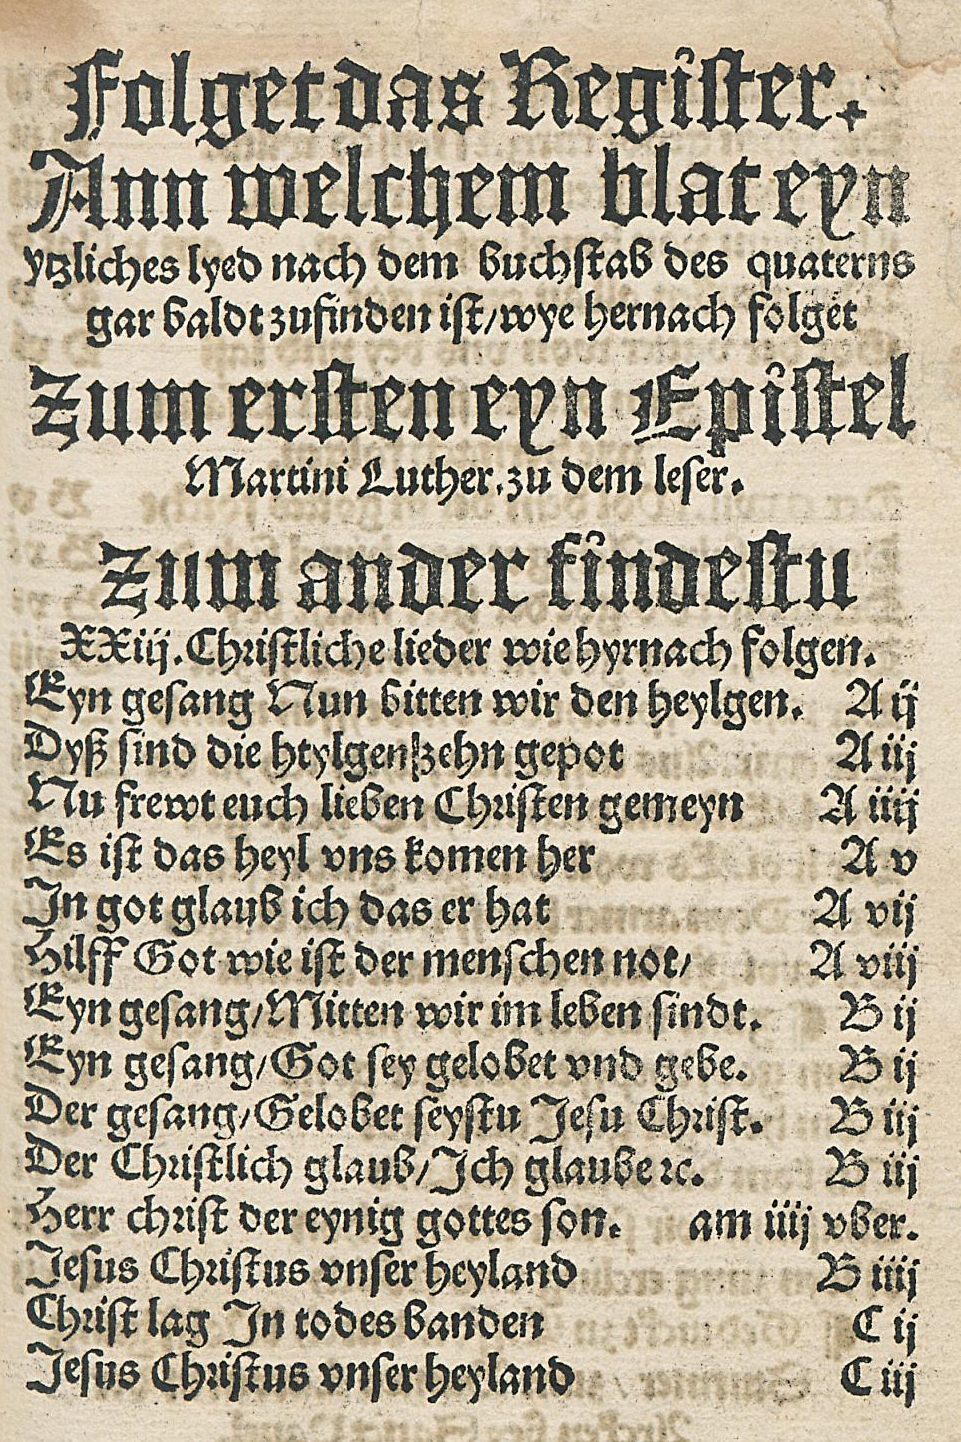 Folget das Regiſter.
Ann welchem blat eyn
ytzliches lyed nach dem buchſtab des quaterns
gar baldt zufinden iſt/wye hernach folget
Zum erſten eyn Epiſtel
Martini Luther. zu dem leſer.
Zum ander findeſtu
XXiij. Chriſtliche lieder wie hyrnach folgen.
Eyn geſang Nun bitten wir den heylgen. A ij
Dyß ſind die htylgen zehn gepot A iij
Nu frewt euch lieben Chriſten gemeyn A iiij
Es iſt das heyl vns komen her A v
In got glaub ich das er hat A vij
Hilff Got wie iſt der menſchen not/ A viij
Eyn geſang/Mitten wir im leben ſindt. B ij
Eyn geſang/Got ſey gelobet vnd gebe. B ij
Der geſang/Gelobet ſeyſtu Jeſu Chriſt. B iij
Der Chriſtlich glaub/Ich glaube ꝛc. B iij
Herr chriſt der eynig gottes ſon. am iiij vber.
Jeſus Chriſtus vnſer heyland B iiij
Chriſt lag In todes banden C ij
Jeſus Chriſtus vnſer heyland C iij